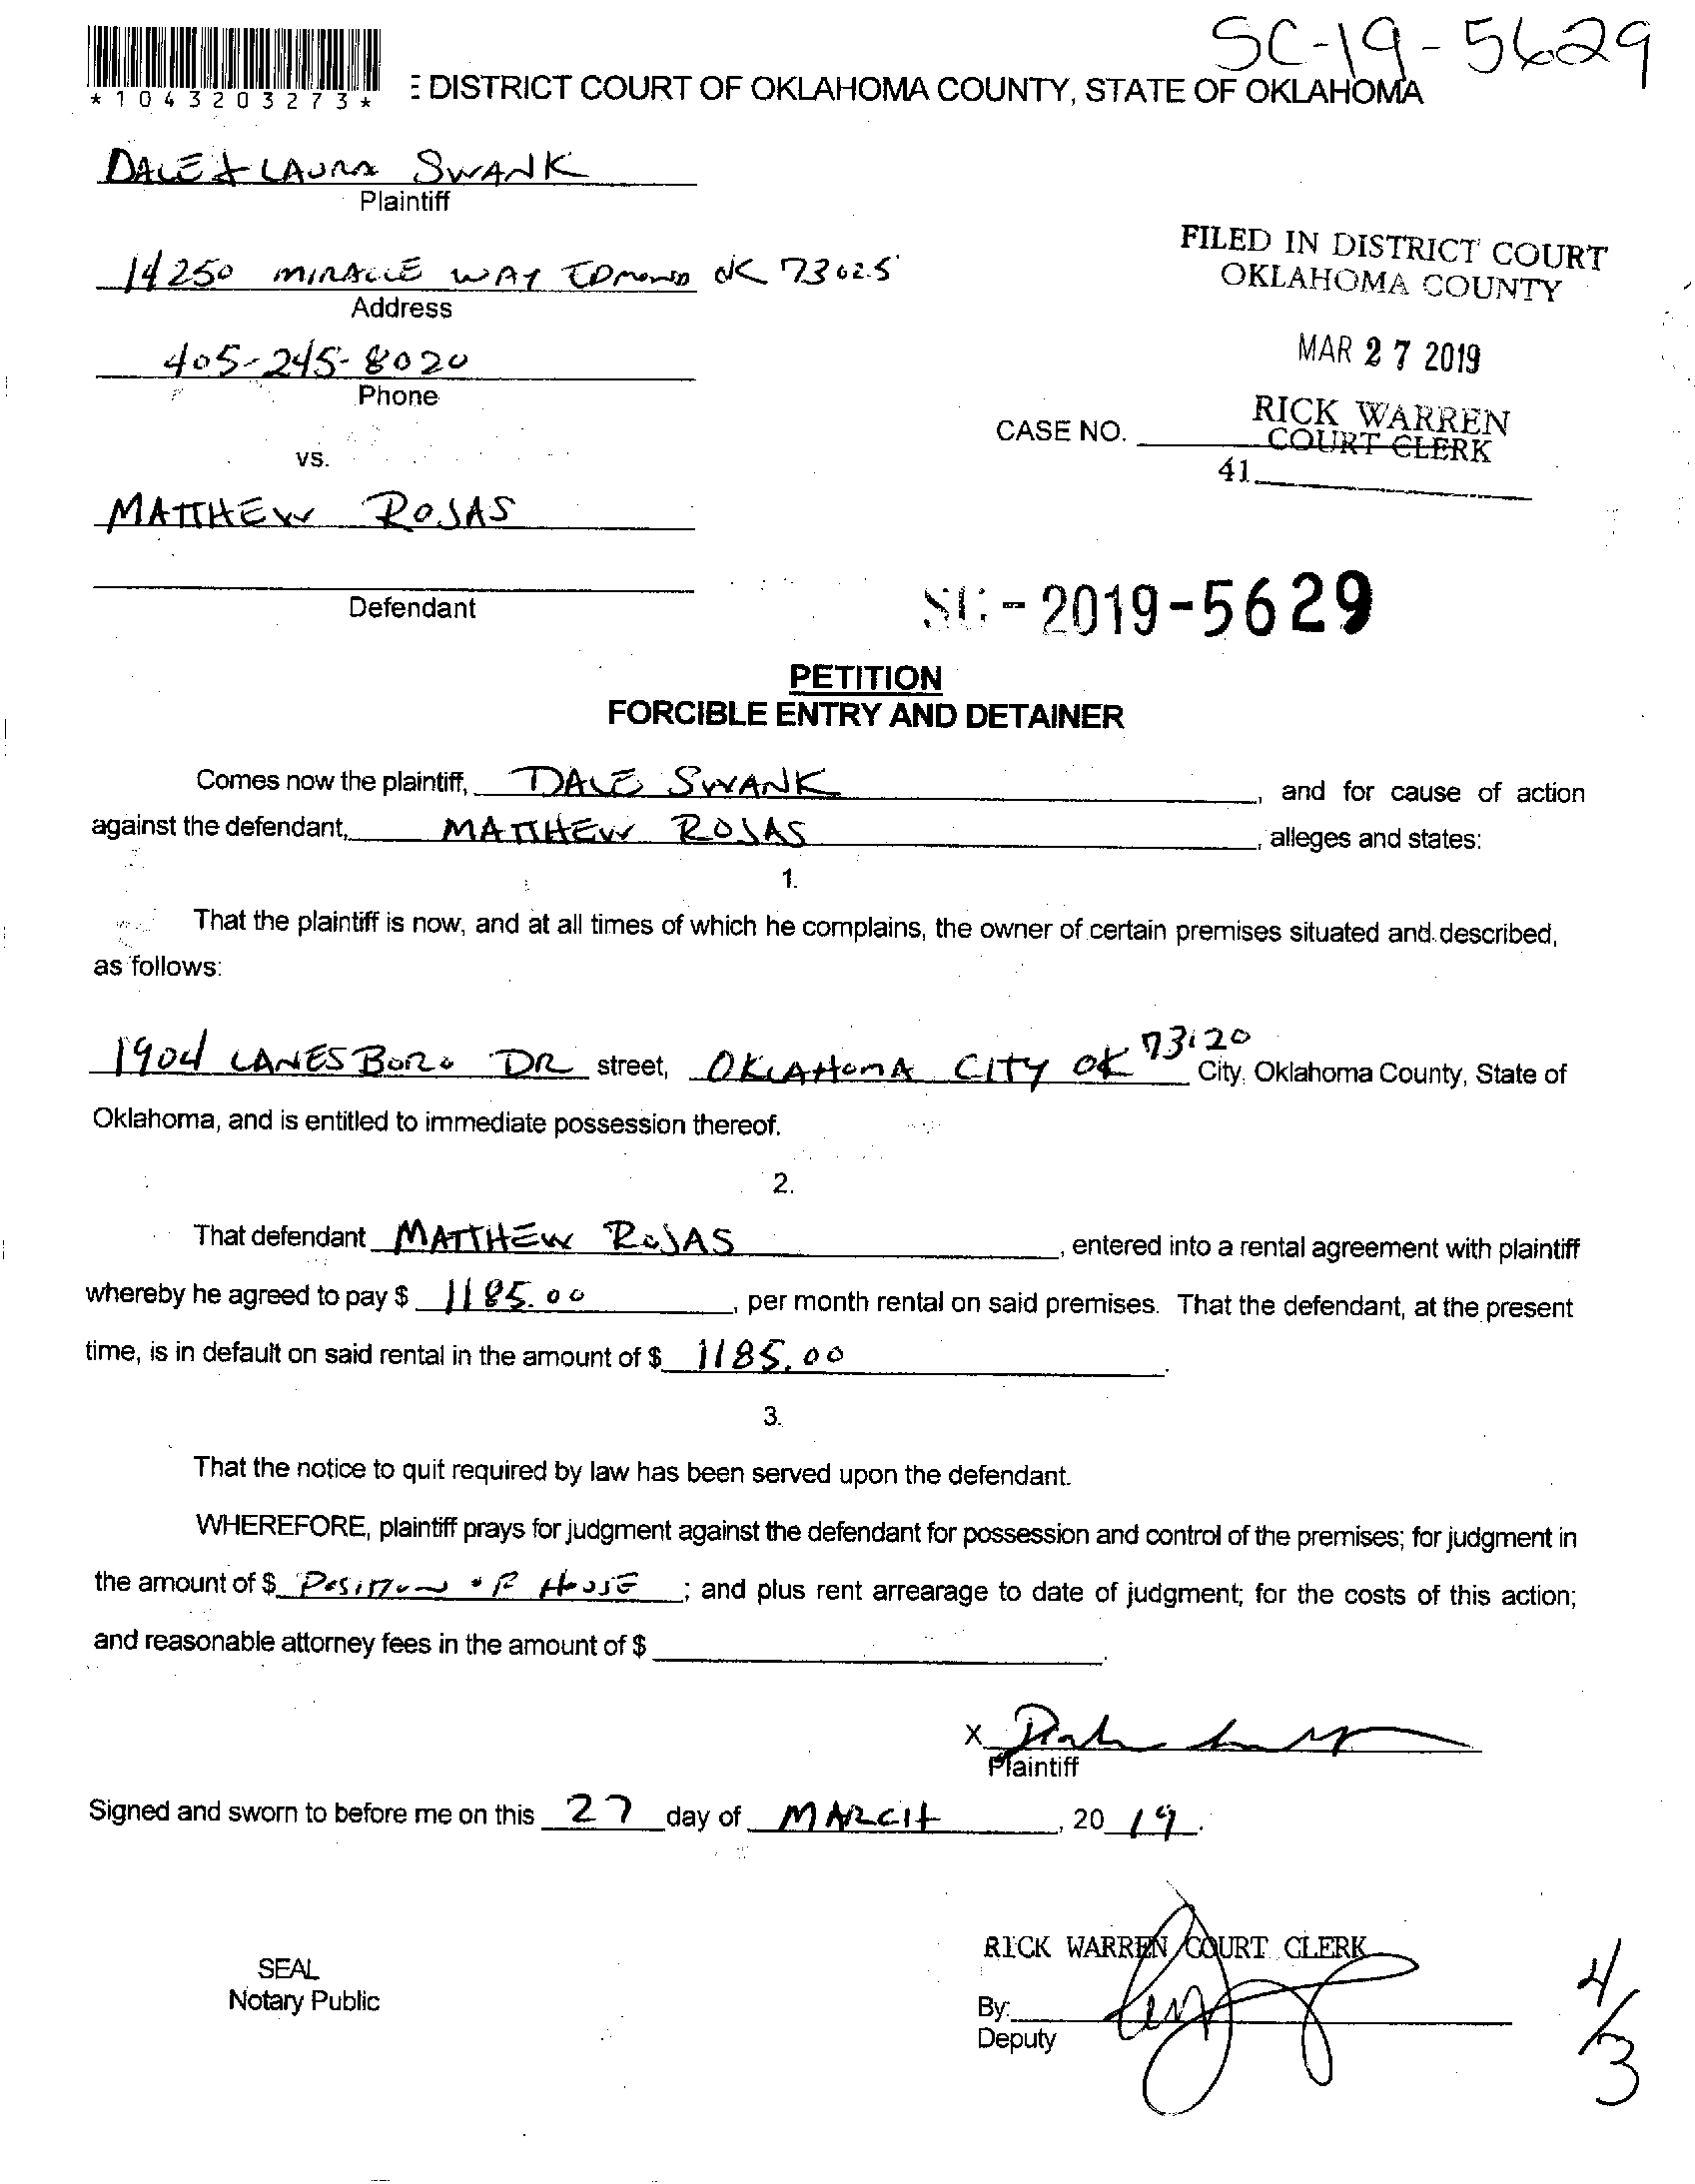 SC-19-5629
*1043203273*
E DISTRICT COURT OF OKLAHOMA COUNTY, STATE OF OKLAHOMA
DALE & LAURA SWANK
Plaintiff
14250 MIRACLE WAY EDMOND OK 73025
Address
FILED IN DISTRICT COURT
OKLAHOMA COUNTY
405-245-8020
Phone
MAR 27 2019
RICK WARREN
COURT CLERK
CASE NO.
41
vs.
MATTHEW ROJAS
Defendant
SC-2019-5629
PETITION
FORCIBLE ENTRY AND DETAINER
Comes now the plaintiff, DALE SWANK, and for cause of action
against the defendant, MATTHEW ROJAS, alleges and states:
1.
That the plaintiff is now, and at all times of which he complains, the owner of certain premises situated and described,
as follows:
1904 LANESBORO DR street, OKLAHOMA CITY OK 73120 City, Oklahoma County, State of
Oklahoma, and is entitled to immediate possession thereof.
2.
That defendant MATTHEW ROJAS, entered into a rental agreement with plaintiff
whereby he agreed to pay $ 1185.00, per month rental on said premises. That the defendant, at the present
time, is in default on said rental in the amount of $ 1185.00.
3.
That the notice to quit required by law has been served upon the defendant.
WHEREFORE, plaintiff prays for judgment against the defendant for possession and control of the premises; for judgment in
the amount of $ POSITION OF HOUSE; and plus rent arrearage to date of judgment; for the costs of this action;
and reasonable attorney fees in the amount of $
X
Plaintiff
Signed and sworn to before me on this 27 day of MARCH, 20 19.
RICK WARREN COURT CLERK
SEAL
Notary Public
By:
Deputy
4/3